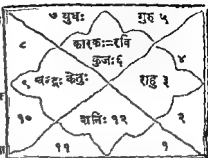 ७ बुधः गुरु ५
८ कारकः=रवि
कुजः ६ ४
९ चन्द्रः केतुः राहु ३
१० शनिः १२ २
११ १